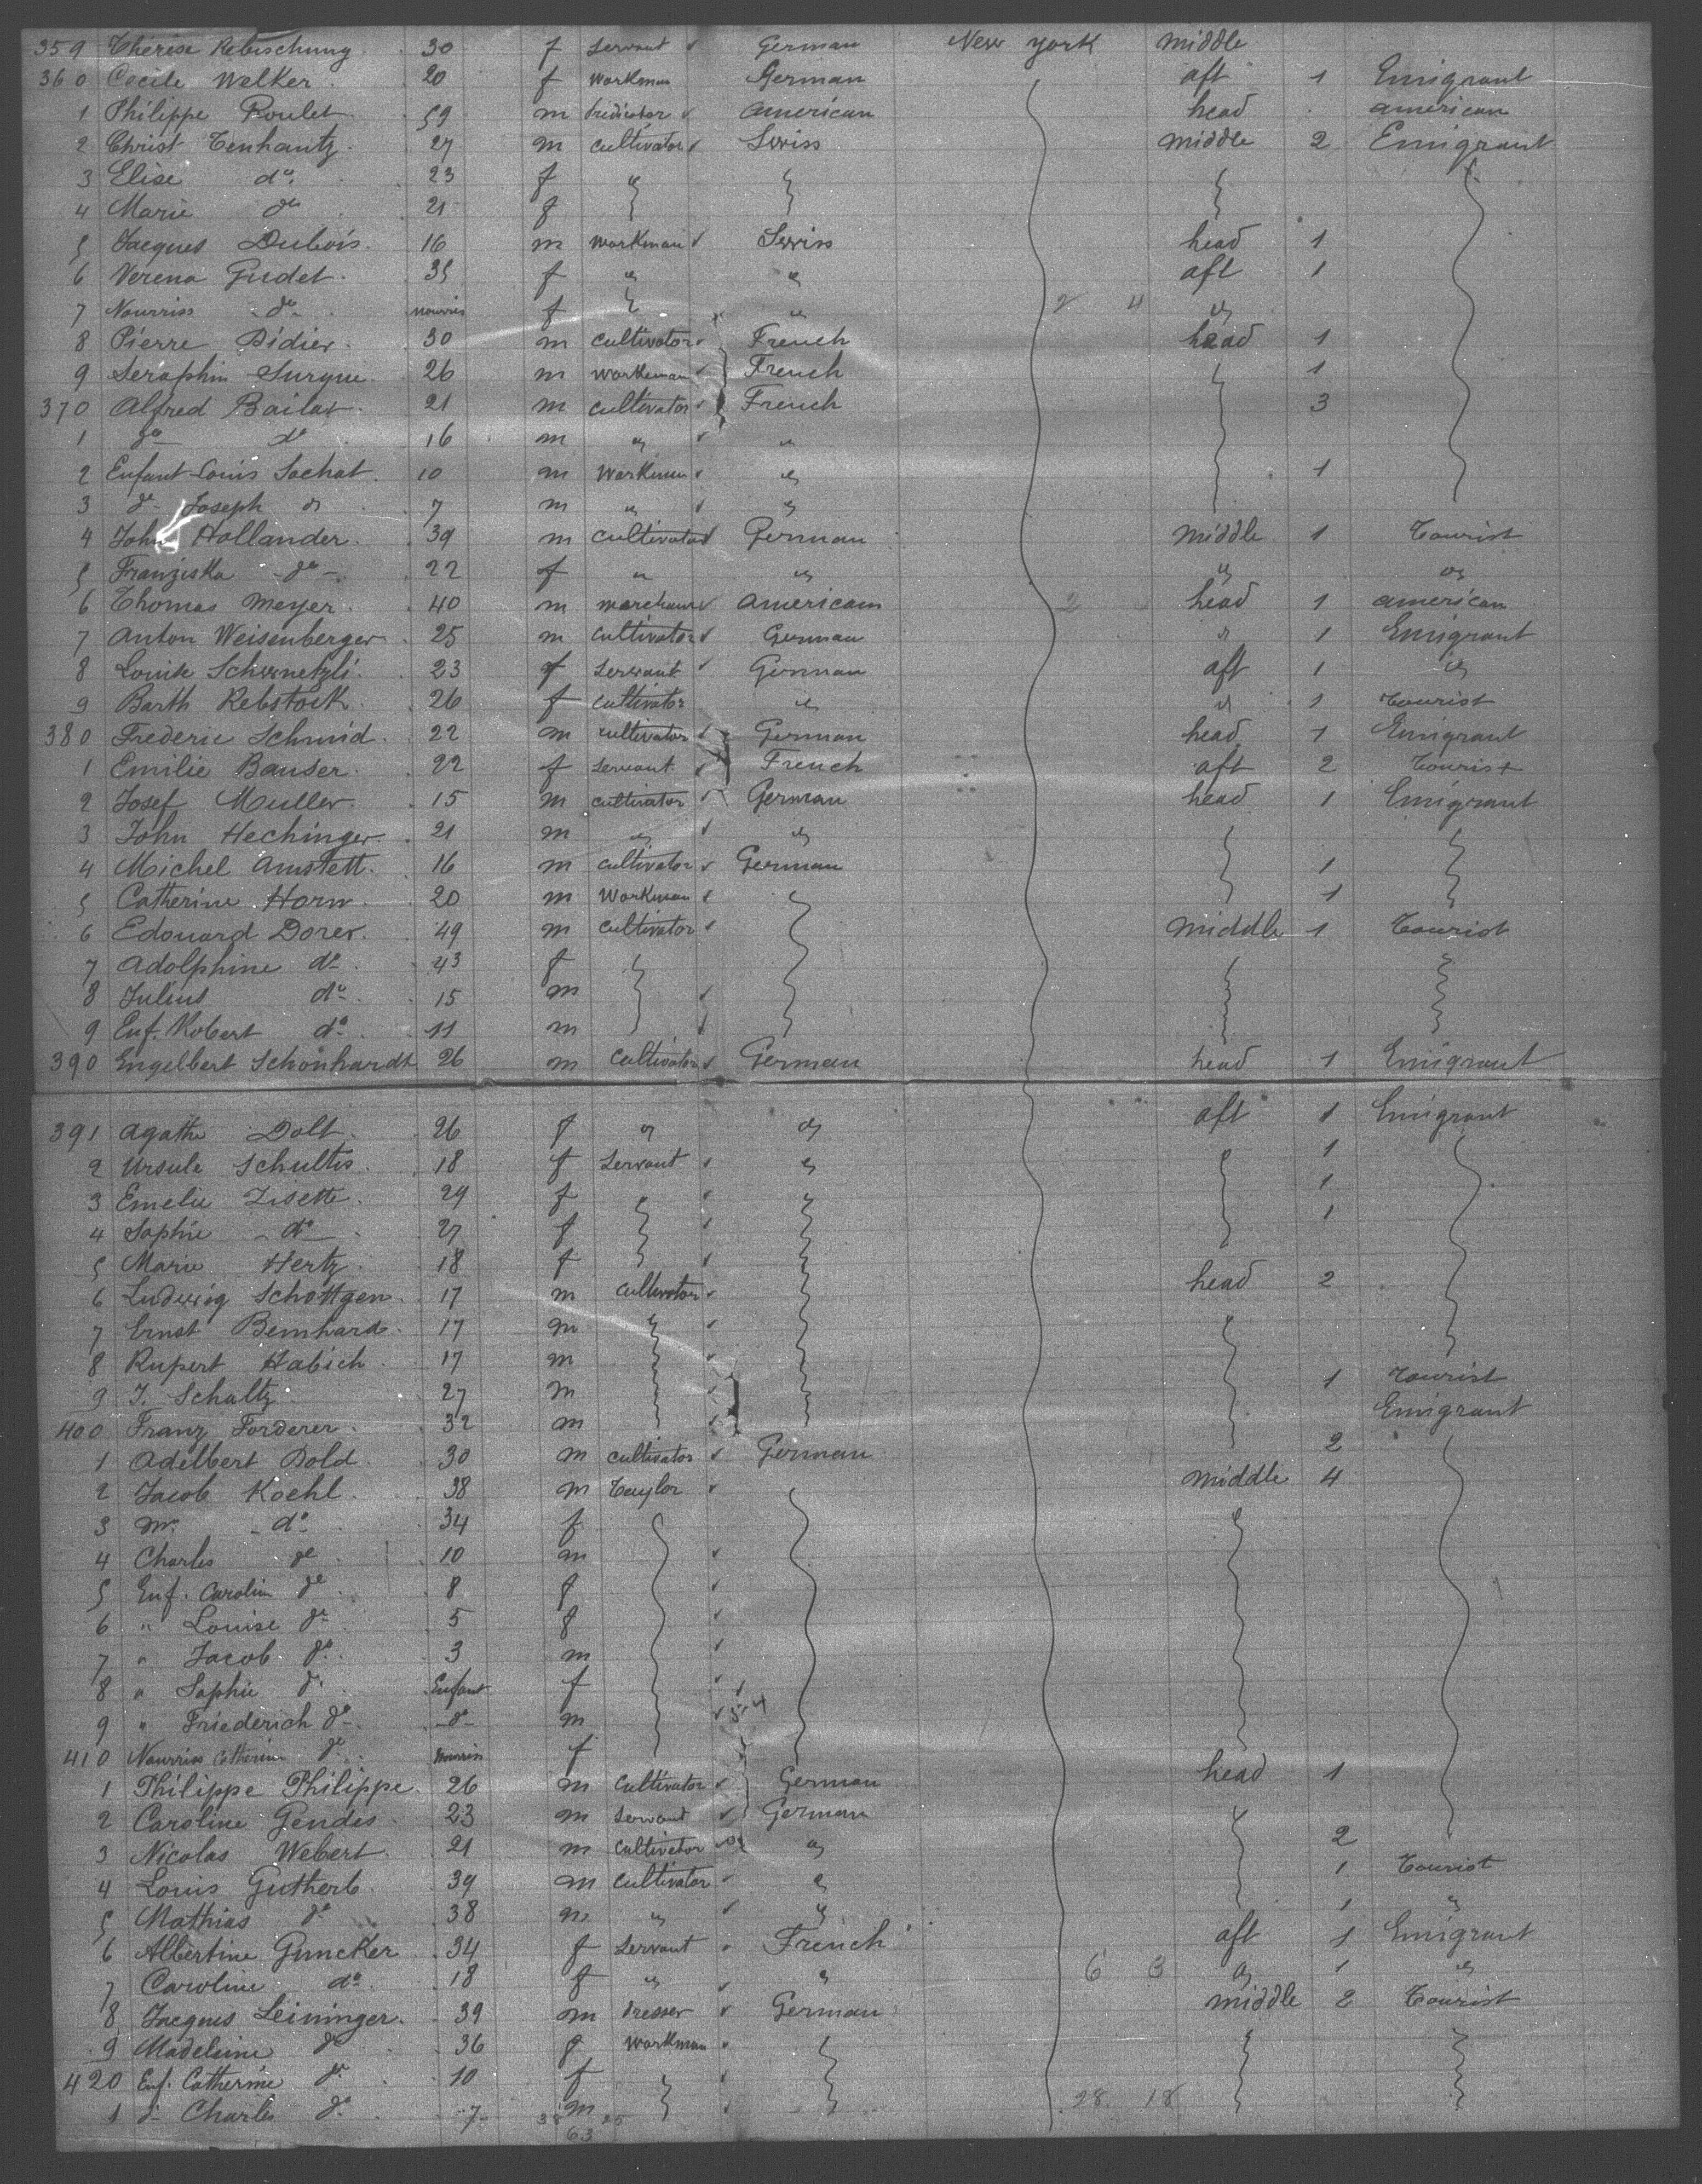 359 Thérèse Rebischung 30 f Servant German New York middle
360 Cecile Welker 20 f Workman German aft 1 Emigrant
1 Philippe Poulet 59 m American head american
2 Christ Tenhantz 27 m cultivator Swiss middle 2 Emigrant
3 Elise do 23 f
4 Marie do 21 f
5 Jacques Dubois 16 m workman Swiss head 1
6 Verena Gudet 35 f " " aft 1
7 Nourriss do nourris f " 2 4 "
8 Pierre Didier 30 m cultivator French head 1
9 Seraphin Surque 26 m workeman French 1
370 Alfred Bailat 21 m cultivator French 3
1 do do 16 m " "
2 Enfant Louis Sachat 10 m Workman " 1
3 do Joseph do 7 m " "
4 John Hollander 39 m cultivator German middle 1 Tourist
5 Franziska do 22 f " " " "
6 Thomas Meyer 40 m American 2 head 1 american
7 Anton Weisenberger 25 m cultivator German " 1 Emigrant
8 Louise Schernetzli 23 f Servant German aft 1 "
9 Barth Rebstock 26 f cultivator " " 1 Tourist
380 Frederic Schmid 22 m cultivator German head 1 Emigrant
1 Emilie Bauser 22 f servant French aft 2 Tourist
2 Josef Muller 15 m cultivator German head 1 Emigrant
3 John Hechinger 21 m " "
4 Michel Amstett 16 m cultivator German 1
5 Catherine Horn 20 m Workman 1
6 Edouard Dorer 49 m cultivator middle 1 Tourist
7 Adolphine do 43 f
8 Julius do 15 m
9 Enf. Robert do 11 m
390 Engelbert Schönhardt 26 m Cultivator German head 1 Emigrant
391 Agathe Dolt 26 f " " aft 1 Emigrant
2 Ursule Schultis 18 f Servant " 1
3 Emelie Zisette 29 f 1
4 Sophie do 27 f 1
5 Marie Hertz 18 f
6 Ludwig Schottgen 17 m Cultivator head 2
7 Ernst Bernhard 17 m
8 Rupert Habich 17 m
9 J. Schultz 27 m 1 Tourist
400 Franz Forderer 32 m Emigrant
1 Adelbert Dold 30 m cultivator German 2
2 Jacob Koehl 38 m Taylor middle 4
3 do 34 f
4 Charles do 10 m
5 Enf. Carolin do 8 f
6 " Louise do 5 f
7 " Jacob do 3 m
8 " Sophie do Enfant f
9 " Friederich do do m
410 Nourriss Catherine do Nourris f
1 Philippe Philippe 26 m Cultivator German head 1
2 Caroline Gendes 23 m Servant German
3 Nicolas Webert 21 m cultivator " 2
4 Louis Gutherb 39 m cultivator " 1 Tourist
5 Mathias do 38 m " " 1 "
6 Albertine Guncker 34 f Servant French aft 1 Emigrant
7 Caroline do 18 f " " 6 3 " 1 "
8 Jacques Leininger 39 m dresser German middle 2 Tourist
9 Madeleine do 36 f Workman
420 Enf. Catherine do 10 f
1 do Charles do 7 m 28 18
38 25
63